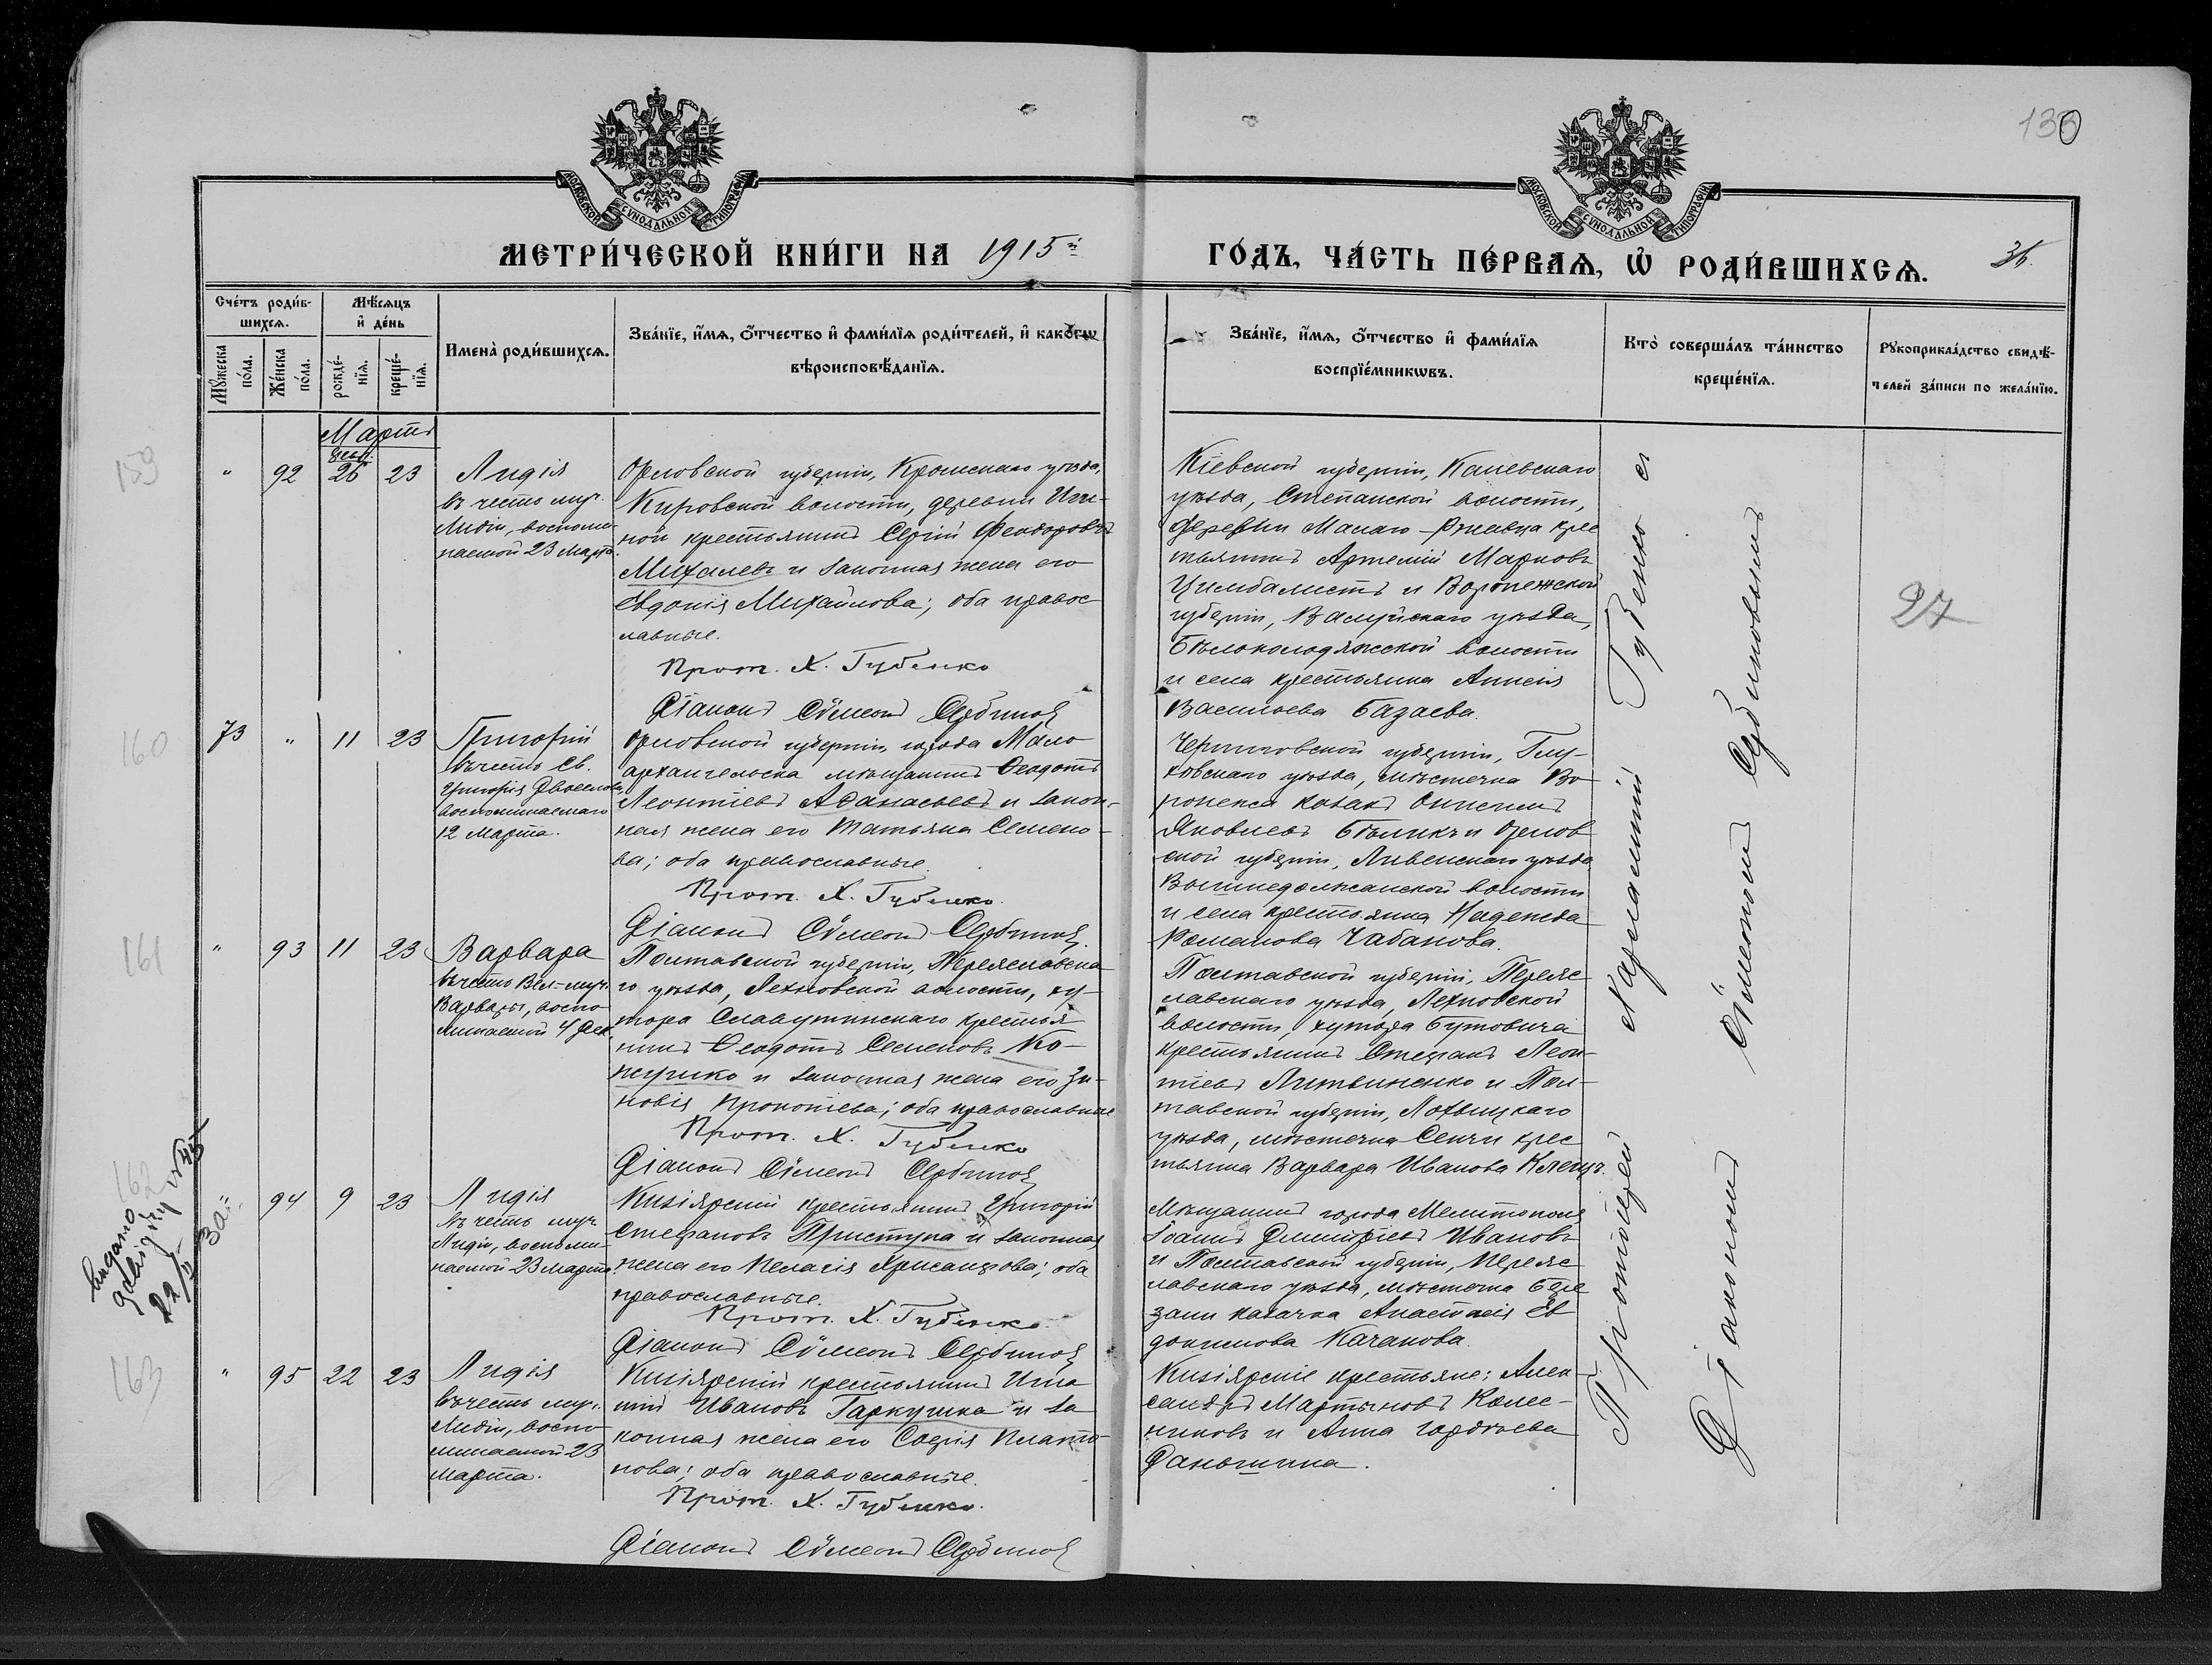 МОСКОВСКОЙ СѴНОДАЛЬНОЙ ТИПОГРАФІИ
МОСКОВСКОЙ СѴНОДАЛЬНОЙ ТИПОГРАФІИ
МЕТРИ́ЧЕСКОЙ КНИ́ГИ НА 1915й
ГО́ДЪ, ЧА́СТЬ ПЕ́РВАѦ, Ѿ РОДИ́ВШИХСѦ.
36.
Сче́тъ роди́в-
шихсѧ.
Мꙋ́жеска
по́ла.
Же́нска
по́ла.
Мѣ́сѧцъ
и҆ де́нь
рожде́-
нїѧ.
креще́-
нїѧ.
Имена̀ роди́вшихсѧ.
Зва́нїе, и҆́мѧ, ѻ҆́тчество и҆ фами́лїѧ роди́телей, и҆ како́гѡ
вѣроисповѣ́данїѧ.
Зва́нїе, и҆́мѧ, ѻ҆́тчество и҆ фами́лїѧ
воспрїе́мникѡвъ.
Кто̀ соверша́лъ та́инство
креще́нїѧ.
Рꙋкоприкла́дство свидѣ́-
телей за́писи по жела́нїю.
Мартъ
159
" 92 26 23
Лидія
въ честь муч.
Лидіи, воспоми-
наемой 23 Марта.
Орловской губерніи, Кромскаго уѣзда,
Кировской волости, деревни Иги-
ной крестьянинъ Сергій Феодоровъ
Михалевъ и законная жена его
Евдокія Михайлова; оба правос
лавные.
Прот. Х. Губенко
Діаконъ Сѵмеонъ Сербиновъ
Кіевской губерніи, Каневскаго
уѣзда, Степанской волости,
деревни Малаго-Ржавца крес
тьянинъ Артемій Марковъ
Цимбалистъ и Воронежской
губерніи, Валуйскаго уѣзда,
Бѣлоколодяжской волости
и села крестьянка Аннисія
Васильева Базаева.
27
160
73 " 11 23
Григорій
въ честь Св.
Григорія Двоеслова
воспоминаемаго
12 Марта.
Орловской губерніи города Мало
архангельска мѣщанинъ Ѳеодотъ
Леонтіевъ Аѳанасьевъ и закон-
ная жена его Татьяна Семено-
ва; оба православные.
Прот. Х. Губенко.
Діаконъ Сѵмеонъ Сербиновъ.
Черниговской губерніи, Глу-
ховскаго уѣзда, мѣстечка Во
ронежа казакъ Онисимъ
Яковлевъ Бѣликъ и Орлов
ской губерніи, Ливенскаго уѣзда
Вышнедолжанской волости
и села крестьянка Надежда
Романова Чабанова.
161
" 93 11 23
Варвара
въ честь Вел-муч.
Варвары, воспо
минаемой 4 Дек.
Полтавской губерніи, Переяславска
го уѣзда, Лехновской волости, ху-
тора Славутинскаго крестья
нинъ Ѳеодотъ Семеновъ Ко-
жушко и законная жена его Зи-
новія Прокопіева; оба православные
Прот. Х. Губенко
Діаконъ Сѵмеонъ Сербиновъ
Полтавской губерніи, Перeяс
лавскаго уѣзда, Лехновской
волости, хутора Бутовича
крестьянинъ Стефанъ Леон-
тіевъ Литвиненко и Пол-
тавской губерніи, Лохвицкаго
уѣзда, мѣстечка Сенчи крес
тьянка Варвара Иванова
162
" 94 9 23
Лидія
въ честь муч.
Лидіи, воспоми-
наемой 23 Марта.
Кизіярскій крестьянинъ Григорій
Стефановъ Приступа и законная
жена его Пелагія Хрисанфова; оба
православные.
Прот. Х. Губенко.
Діаконъ Сѵмеонъ Сербиновъ
Мѣщанинъ города Мелитополя
Іоаннъ Димитріевъ Ивановъ
и Полтавской губерніи, Переяс
лавскаго уѣзда, мѣстечка Бере
зани казачка Анастасія Ев
докимова Качанова.
163
" 95 22 23
Лидія
въ честь муч.
Лидіи, воспо
минаемой 23
Марта.
Кизіярскій крестьянинъ Игна
тій Ивановъ Гаркушка и за
конная жена его Софія Плато-
нова; оба православные.
Прот. Х. Губенко.
Діаконъ Сѵмеонъ Сербиновъ
Кизіярскіе крестьяне: Алек-
сандръ Мартыновъ Колес-
никовъ и Анна Гордѣева
Фаньшина.
Протоіерей Харлампій Губенко съ
Діакономъ Сѵмеономъ Сербиновымъ